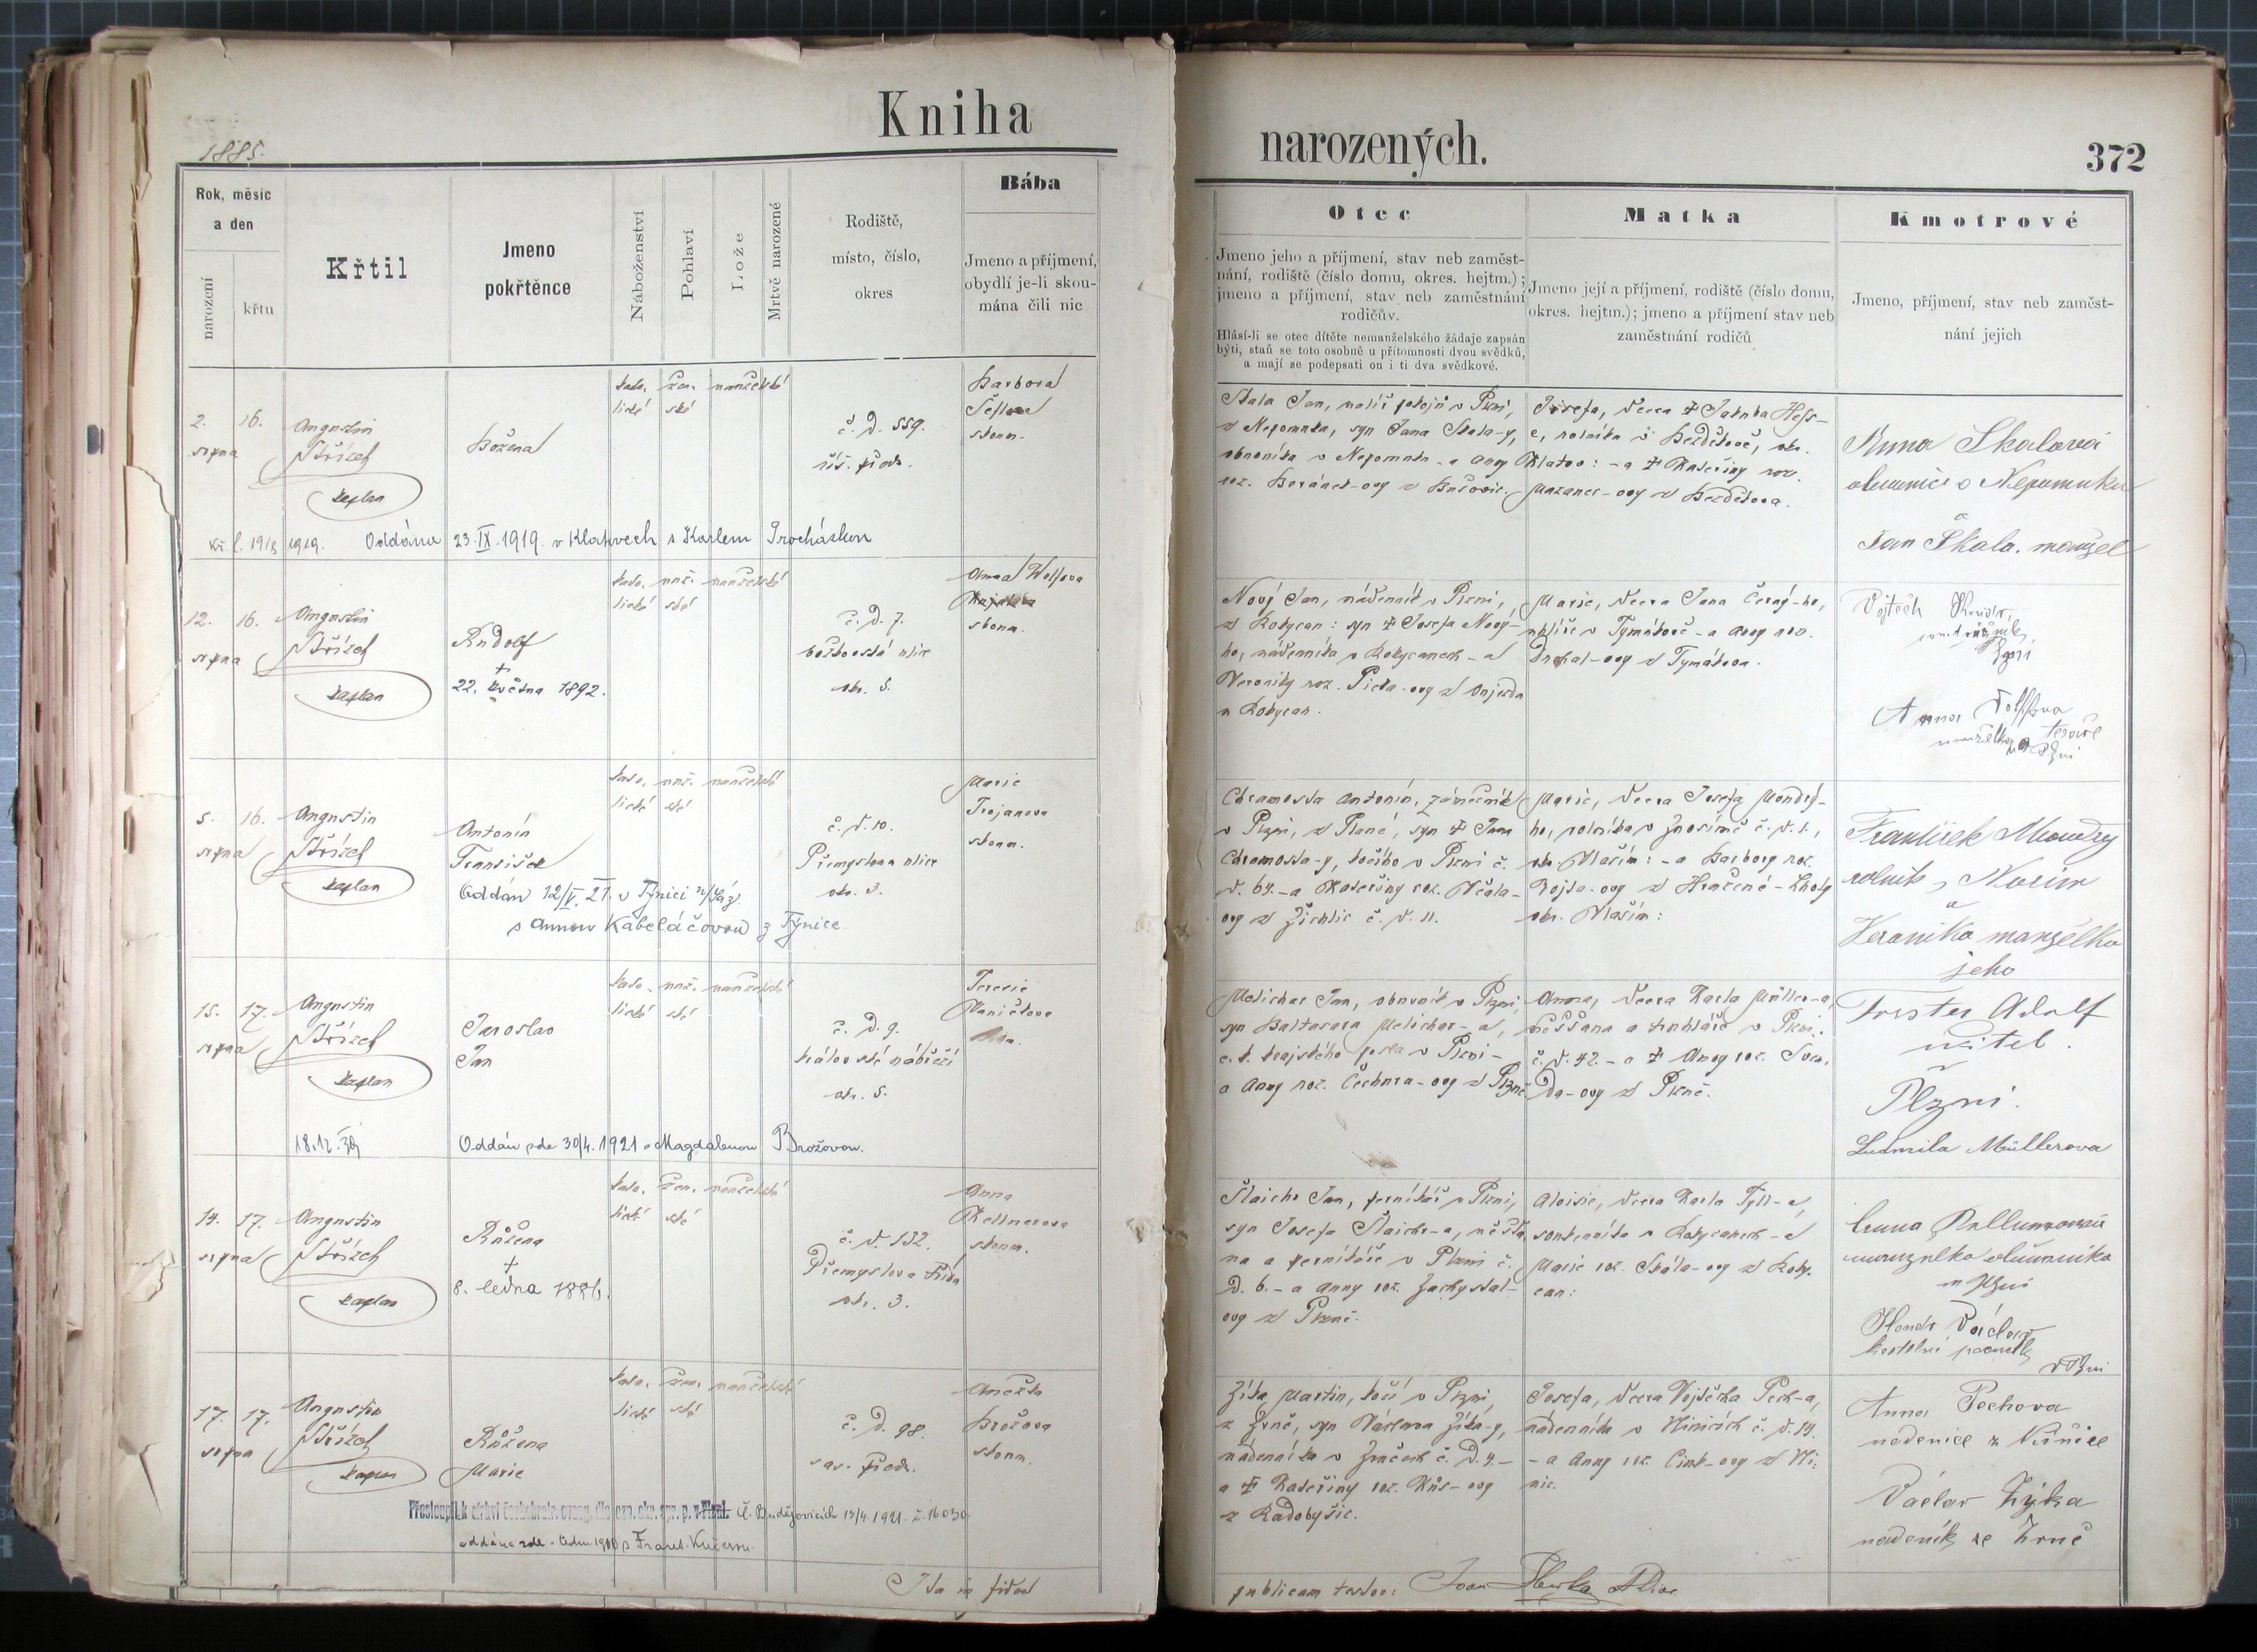 Kniha
narozených.
372
1885.
Rok, měsíc
a den
narození
křtu
Křtil
Jmeno
pokřtěnce
Náboženství
Pohlaví
Lože
Mrtvě narozené
Rodiště,
místo, číslo,
okres
Bába
Jmeno a příjmení,
obydlí je-li skou-
mána čili nic
Otec
Jmeno jeho a příjmení, stav neb zaměst-
nání, rodiště (číslo domu, okres. hejtm.);
jmeno a příjmení, stav neb zaměstnání
rodičův.
Hlásí-li se otec dítěte nemanželského žádaje zapsán
býti, staň se toto osobně u přítomnosti dvou svědků,
a mají se podepsati on i ti dva svědkové.
Matka
Jmeno její a příjmení, rodiště (číslo domu,
okres. hejtm.); jmeno a příjmení stav neb
zaměstnání rodičů
Kmotrové
Jmeno, příjmení, stav neb zaměst-
nání jejich
2. 16.
srpna
Augustin
Střízek
kaplan
Božena
kato- žen- manželské
lické ské
č. d. 559.
říš. předm.
Barbora
zkoum.
Skala Jan, malíř pokojů v Plzni,
z Nepomuka, syn Jana Skala-y,
obuvníka v Nepomuku - a Anny
roz. Beránek-ovy z
Josefa, dcera † Jakuba Hess-
e, rolníka v Bezděkově, okr.
Klatov: - a † Kateřiny roz.
Mazanec-ovy z Bezděkova.
Anna Skalová
obuvnice v Nepomuku
a
Jan Skala, manžel
Oddána 23.IX.1919. v Klatovech s Karlem Procházkou
12. 16.
srpna
Augustin
Střízek
kaplan
Rudolf
+
22. května 1892.
kato- muž- manželské
lické ské
č. d. 7.
ulice
okr. 5.
Anna Wolfova
zkoum.
Nový Jan, nádenník v Plzni,
z Rokycan: syn † Josefa Nový-
ho, nádenníka v Rokycanech - a
Veroniky roz. Picka-ovy z Oujezda
u Rokycan.
Marie, dcera Jana Černý-ho,
uhlíře v Tymákově - a Anny roz.
Drchal-ovy z Tymákova.
Vojtěch
Anna Volfova
manželka
v Plzni
5. 16.
srpna
Augustin
Střízek
kaplan
Antonín
František
Oddán 12/V. 21. v Týnici n/Sáz.
s Annou Kabeláčovou z Týnice
kato- muž- manželské
lické ské
č. d. 10.
Přemyslova ulice
okr. 3.
Marie
Trojanova
zkoum.
Chramosta Antonín, zámečník
v Plzni, z Plané, syn † Jana
Chramosta-y, kočího v Plzni č.
d. 64. - a Kateřiny roz. Včala-
ovy z Žichlic č. d. 11.
Marie, dcera Josefa Moudrý-
ho, rolníka v Znosimě č. d. 1.,
okr. Vlašim: - a Barbory roz.
Vojta-ovy z Hrazené-Lhoty
okr. Vlašim:
František Moudrý
rolník z
a
Veronika manželka
jeho
15. 17.
srpna
Augustin
Střízek
kaplan
Jaroslav
Jan
kato- muž- manželské
lické ské
č. d. 9.
nábřeží
okr. 5.
Terezie
Vaníčkova
zkoum.
Melichar Jan, obuvník v Plzni,
syn Baltasara Melichar-a,
c. k. krajského posla v Plzni -
a Anny roz. Čechura-ovy z Plzně.
Anna, dcera Karla Müller-a,
měšťana a truhláře v Plzni
č. d. 42. - a † Anny roz. Svobo-
da-ovy z Plzně.
Forster Adolf
učitel.
v
Plzni.
Ludmila Müllerova
18.12.39
Oddán zde 30/4. 1921 s Magdalenou Brožovou.
14. 17.
srpna
Augustin
Střízek
kaplan
Růžena
+
8. ledna 1886.
kato- žen- manželské
lické ské
č. d. 132.
Přemyslova třída
okr. 3.
Anna
Kellnerova
zkoum.
Šlaichr Jan, perníkář v Plzni,
syn Josefa Šlaichr-a, měšťa-
na a perníkáře v Plzni č.
d. 6. - a Anny roz. Zachystal-
ovy z Plzně.
Aloisie, dcera Karla Tyll-a,
soukenníka v Rokycanech - a
Marie roz. Skála-ovy z Roky-
can:
Anna
manželka
v Plzni
Václav
v Plzni
17. 17.
srpna
Augustin
Střízek
kaplan
Růžena
Marie
kato- žen- manželské
lické ské
č. d. 98.
předm.
Anežka
Brožova
zkoum.
Zíka, Martin, kočí v Plzni,
z Zruč, syn Václava Zíka-y,
nádenníka v Zručech č. d. 4. -
a † Kateřiny roz. Kůs-ovy
z Radobyšic.
Josefa, dcera Vojtěcha Pech-a,
nádenníka v Winicích č. d. 14.
- a Anny roz. Cink-ovy z Wi-
nic.
Anna Pechova
nádenice z
Václav Zýka
nádeník ze Zruč
Č. Budějovicích 13/4. 1921. č. 16030
oddána zde s Frant. Kučerou
Ita in fidem
publicam testor: